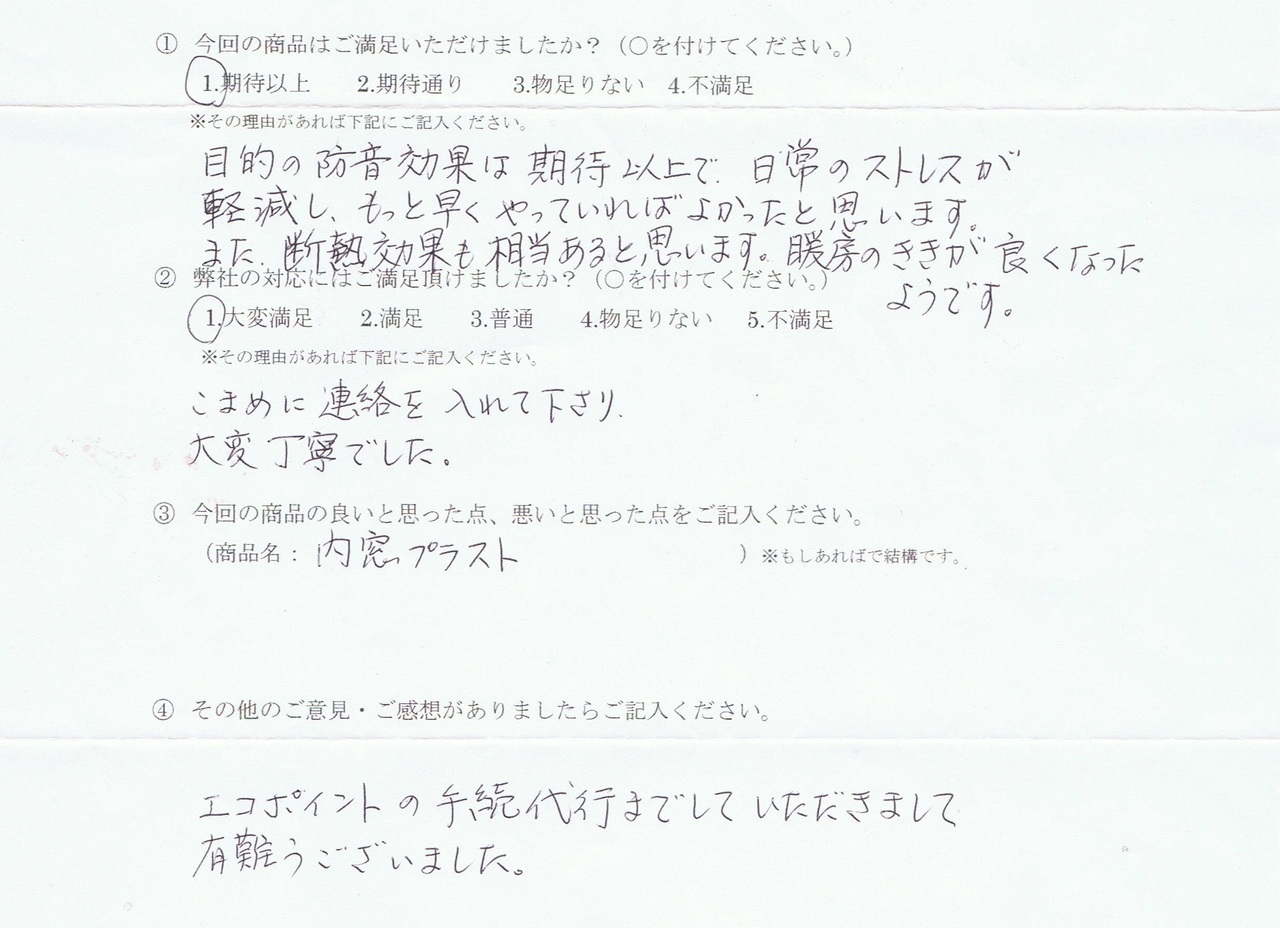 ① 今回の商品はご満足いただけましたか？（○を付けてください。）
1.期待以上　2.期待通り　3.物足りない　4.不満足
※その理由があれば下記にご記入ください。
目的の防音効果は期待以上で、日常のストレスが
軽減し、もっと早くやっていればよかったと思います。
また、断熱効果も相当あると思います。暖房のききが良くなった
ようです。
② 弊社の対応にはご満足頂けましたか？（○を付けてください。）
1.大変満足　2.満足　3.普通　4.物足りない　5.不満足
※その理由があれば下記にご記入ください。
こまめに連絡を入れて下さり、
大変丁寧でした。
③ 今回の商品の良いと思った点、悪いと思った点をご記入ください。
（商品名：内窓プラスト　）※もしあればで結構です。
④ その他のご意見・ご感想がありましたらご記入ください。
エコポイントの手続代行までしていただきまして
有難うございました。